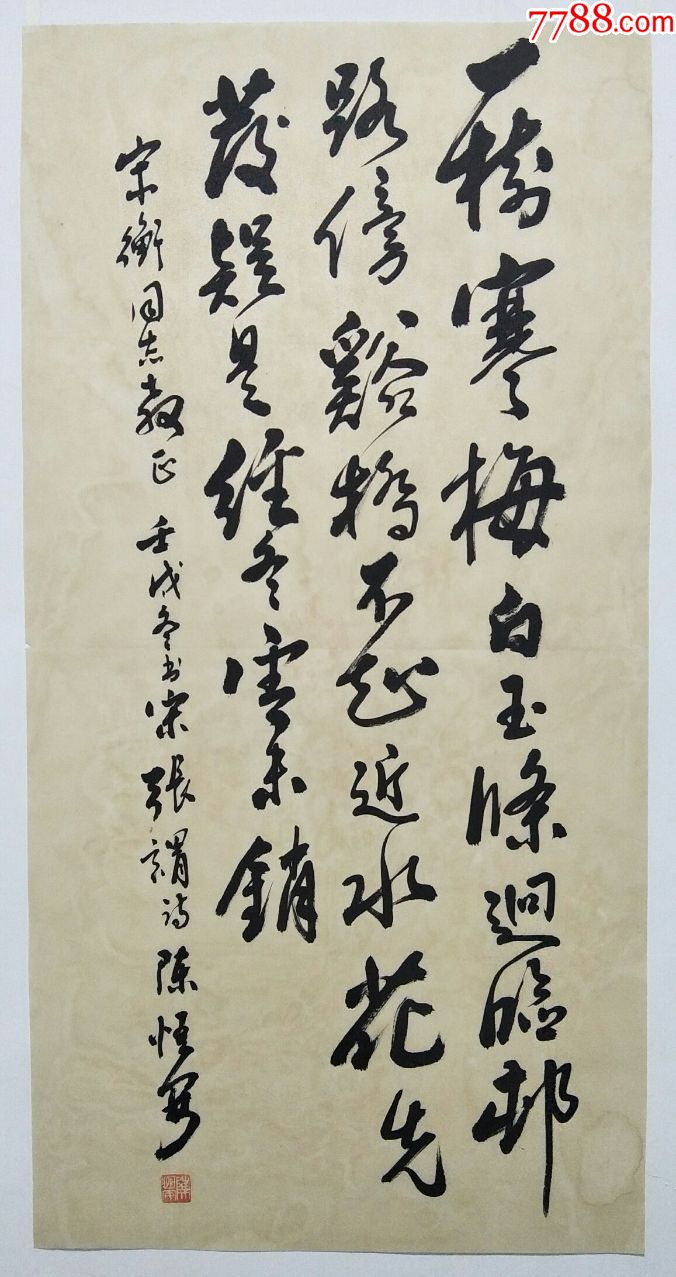 7788.com
一樹寒梅白玉條迥臨邨
路傍谿橋不知近水花先
發疑是經冬雪未銷
宋衡同志教正 壬戌冬书宋張謂诗 陈恒写